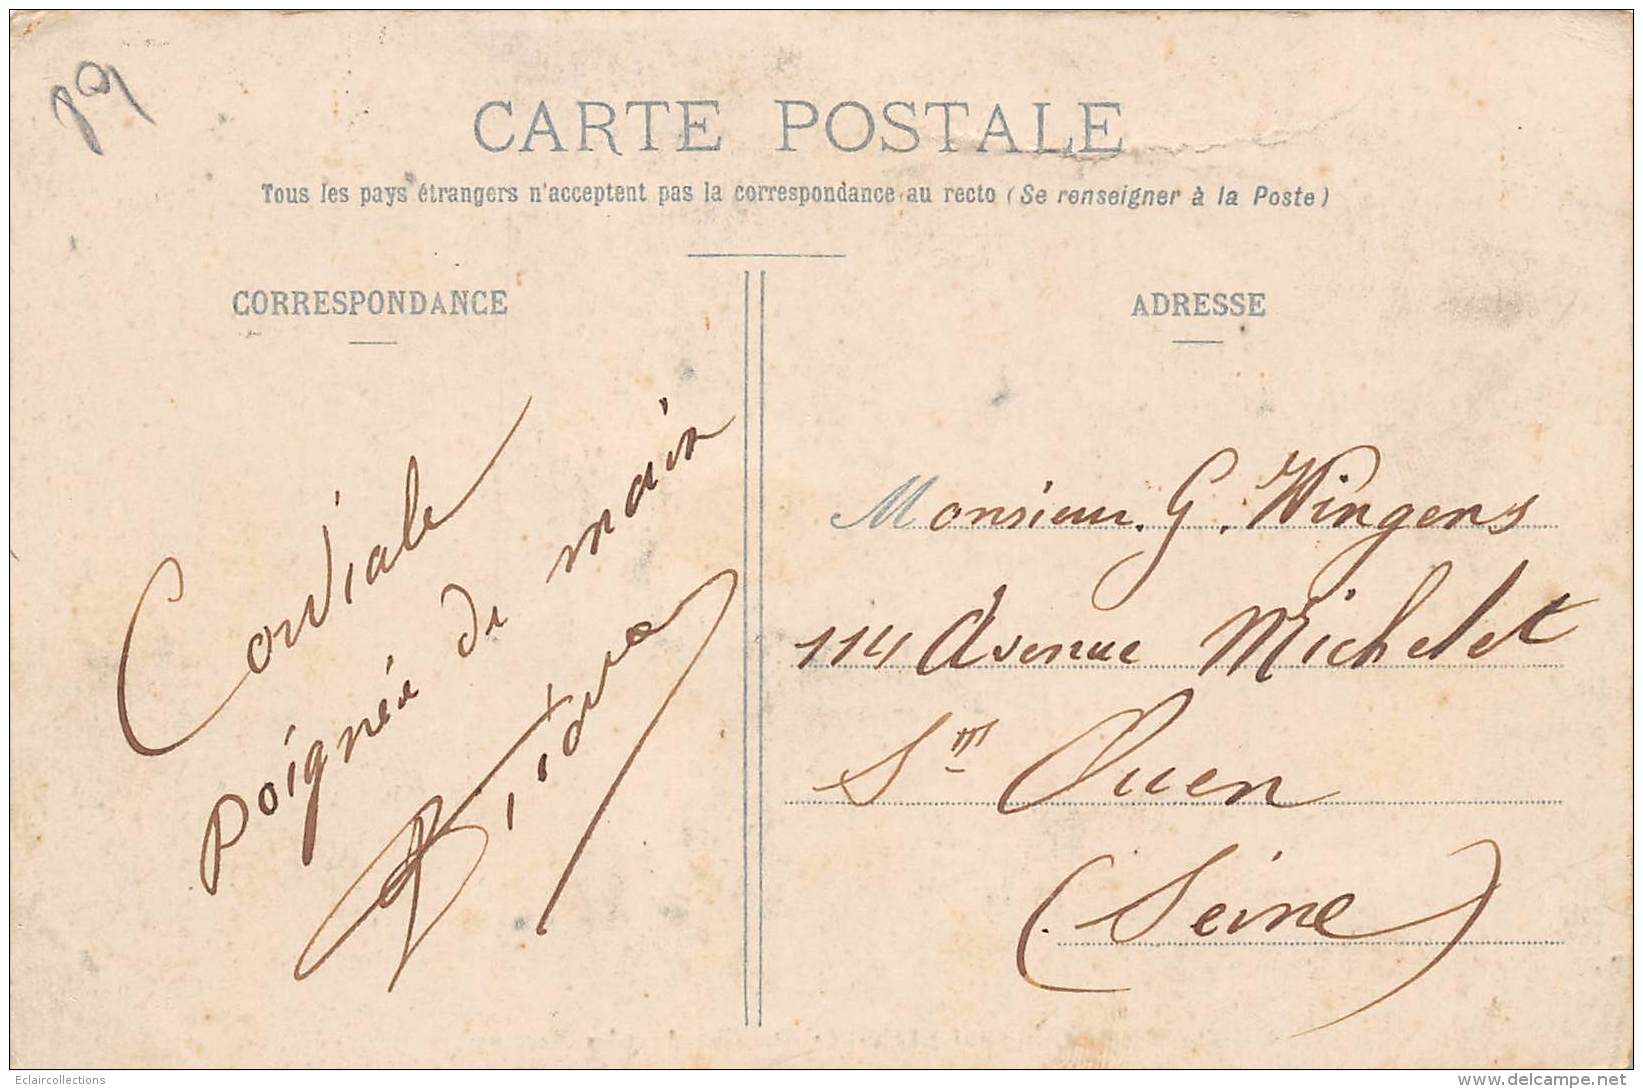 CARTE POSTALE
Tous les pays étrangers n'acceptent pas la correspondance au recto (Se renseigner à la Poste)
CORRESPONDANCE
Cordiale
poignée de main
ADRESSE
Monsieur G. Wingens
114 Avenue Michelet
St Ouen
(Seine)
Eclaircollections
www.delcampe.net